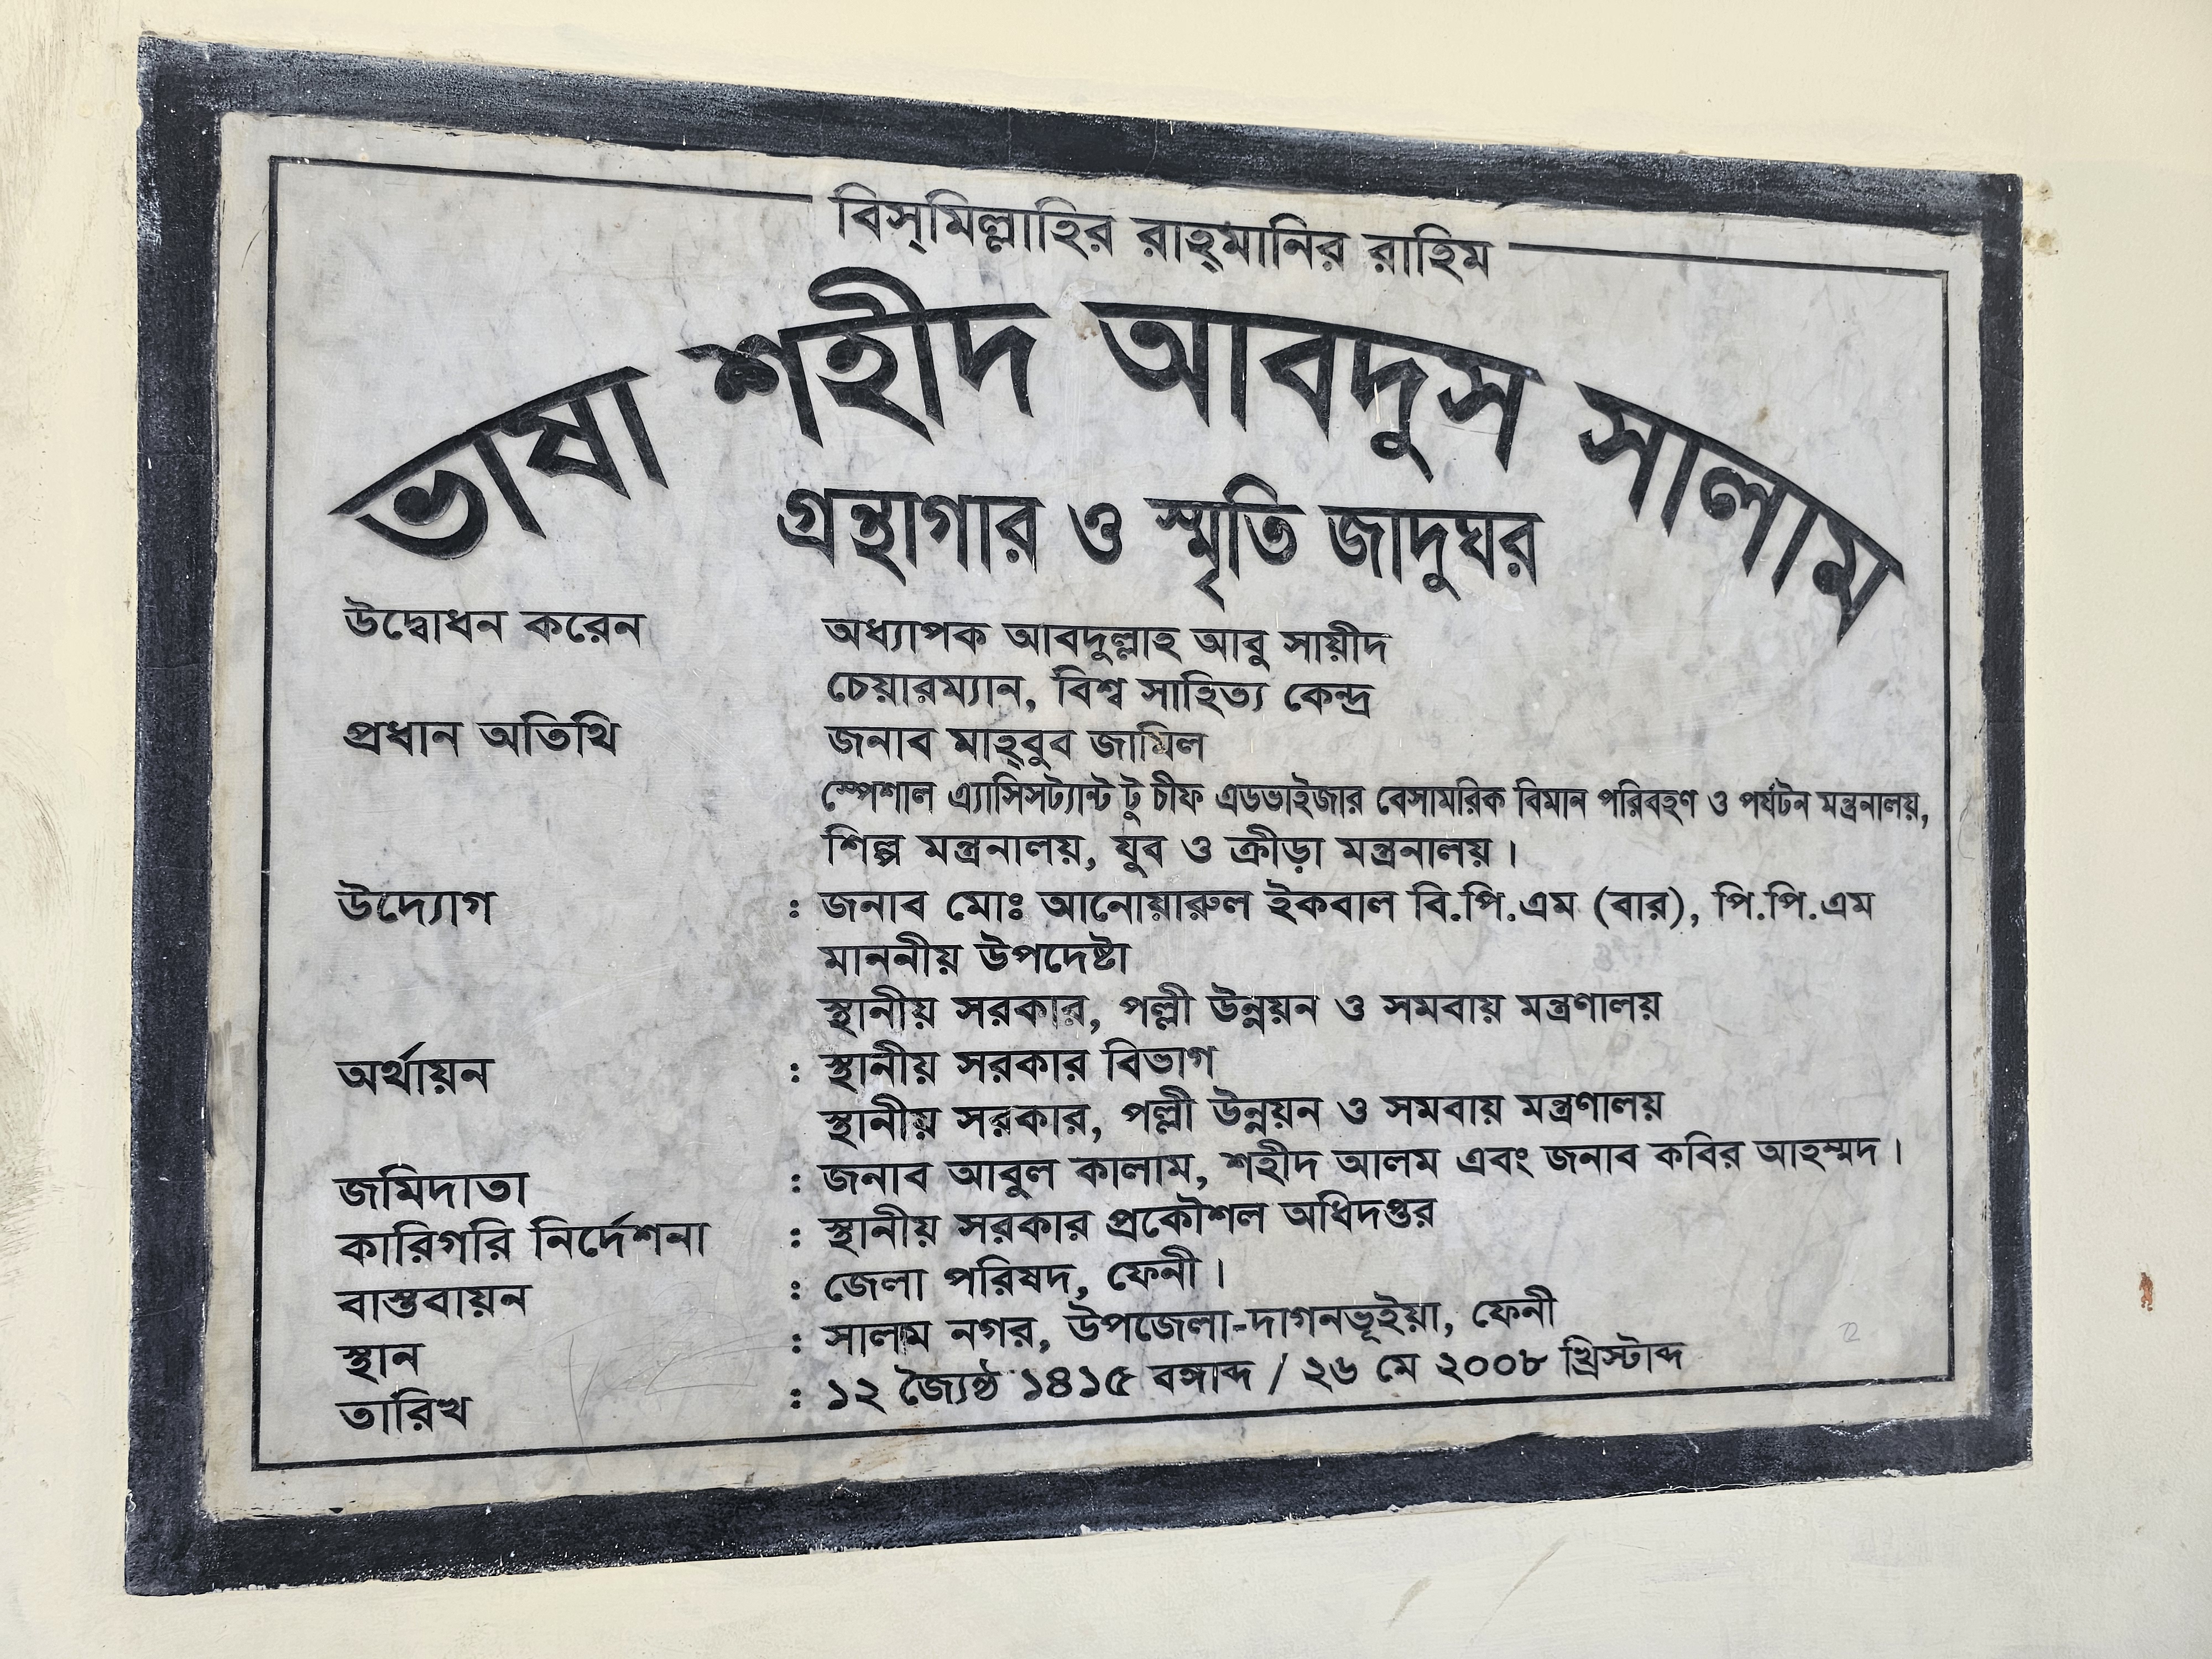 বিস্‌মিল্লাহির রাহ্‌মানির রাহিম
ভাষা শহীদ আবদুস সালাম
গ্রন্থাগার ও স্মৃতি জাদুঘর
উদ্বোধন করেন অধ্যাপক আবদুল্লাহ আবু সায়ীদ
চেয়ারম্যান, বিশ্ব সাহিত্য কেন্দ্র
প্রধান অতিথি জনাব মাহ্‌বুব জামিল
স্পেশাল এ্যাসিসট্যান্ট টু চীফ এডভাইজার বেসামরিক বিমান পরিবহণ ও পর্যটন মন্ত্রনালয়,
শিল্প মন্ত্রনালয়, যুব ও ক্রীড়া মন্ত্রনালয়।
উদ্যোগ : জনাব মোঃ আনোয়ারুল ইকবাল বি.পি.এম (বার), পি.পি.এম
মাননীয় উপদেষ্টা
স্থানীয় সরকার, পল্লী উন্নয়ন ও সমবায় মন্ত্রণালয়
অর্থায়ন : স্থানীয় সরকার বিভাগ
স্থানীয় সরকার, পল্লী উন্নয়ন ও সমবায় মন্ত্রণালয়
জমিদাতা : জনাব আবুল কালাম, শহীদ আলম এবং জনাব কবির আহম্মদ।
কারিগরি নির্দেশনা : স্থানীয় সরকার প্রকৌশল অধিদপ্তর
বাস্তবায়ন : জেলা পরিষদ, ফেনী।
স্থান : সালাম নগর, উপজেলা-দাগনভূইয়া, ফেনী
তারিখ : ১২ জ্যৈষ্ঠ ১৪১৫ বঙ্গাব্দ / ২৬ মে ২০০৮ খ্রিস্টাব্দ